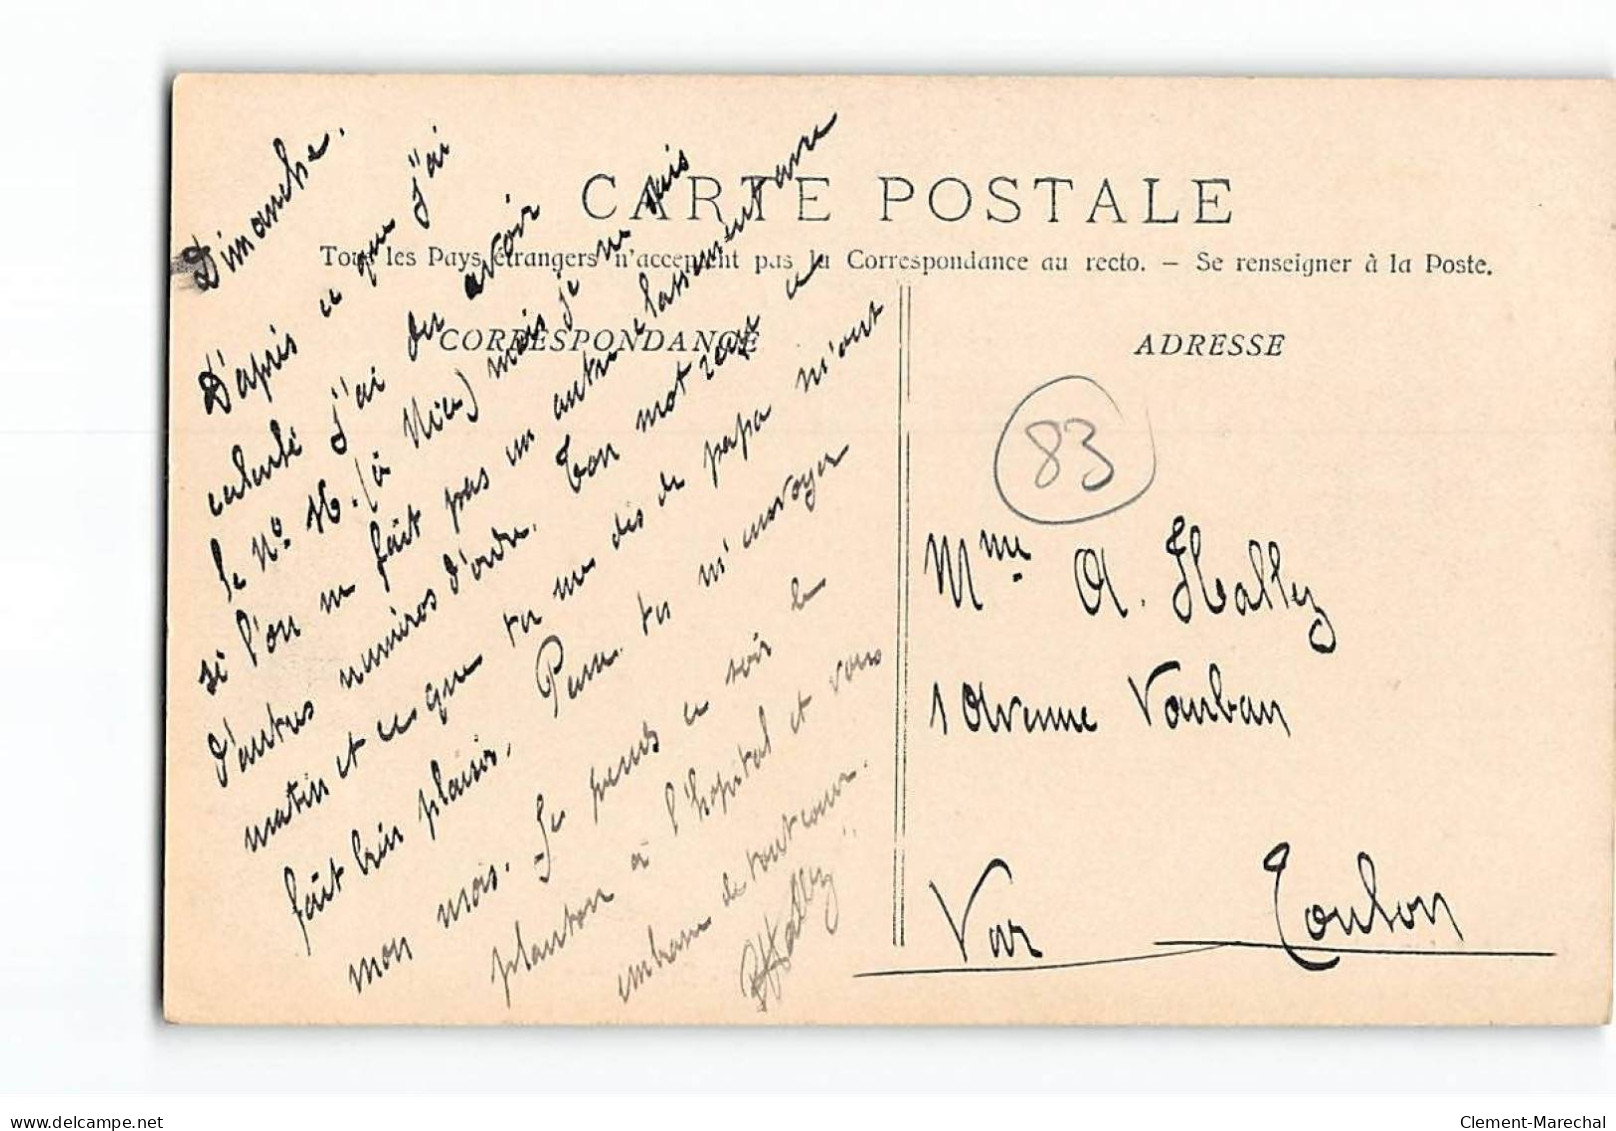 CARTE POSTALE
Tous les Pays étrangers n'acceptent pas la Correspondance au recto. — Se renseigner à la Poste.
CORRESPONDANCE
ADRESSE
Dimanche.
D'après ce que j'ai
calculé j'ai du avoir
le Nº 16. (à Nice) mais je ne sais
si l'on ne fait pas un autre classement avec
d'autres numéros d'ordre. Ton mot reçu ce
matin et ce que tu me dis de papa m'ont
fait bien plaisir. Peux tu m'envoyer
mon mois. Je prends ce soir le
planton à l'hopital et vous
embrasse de tout cœur.
Hallez
83
Mme A. Hallez
1 Avenue Vauban
Toulon
Var
Clement-Marechal